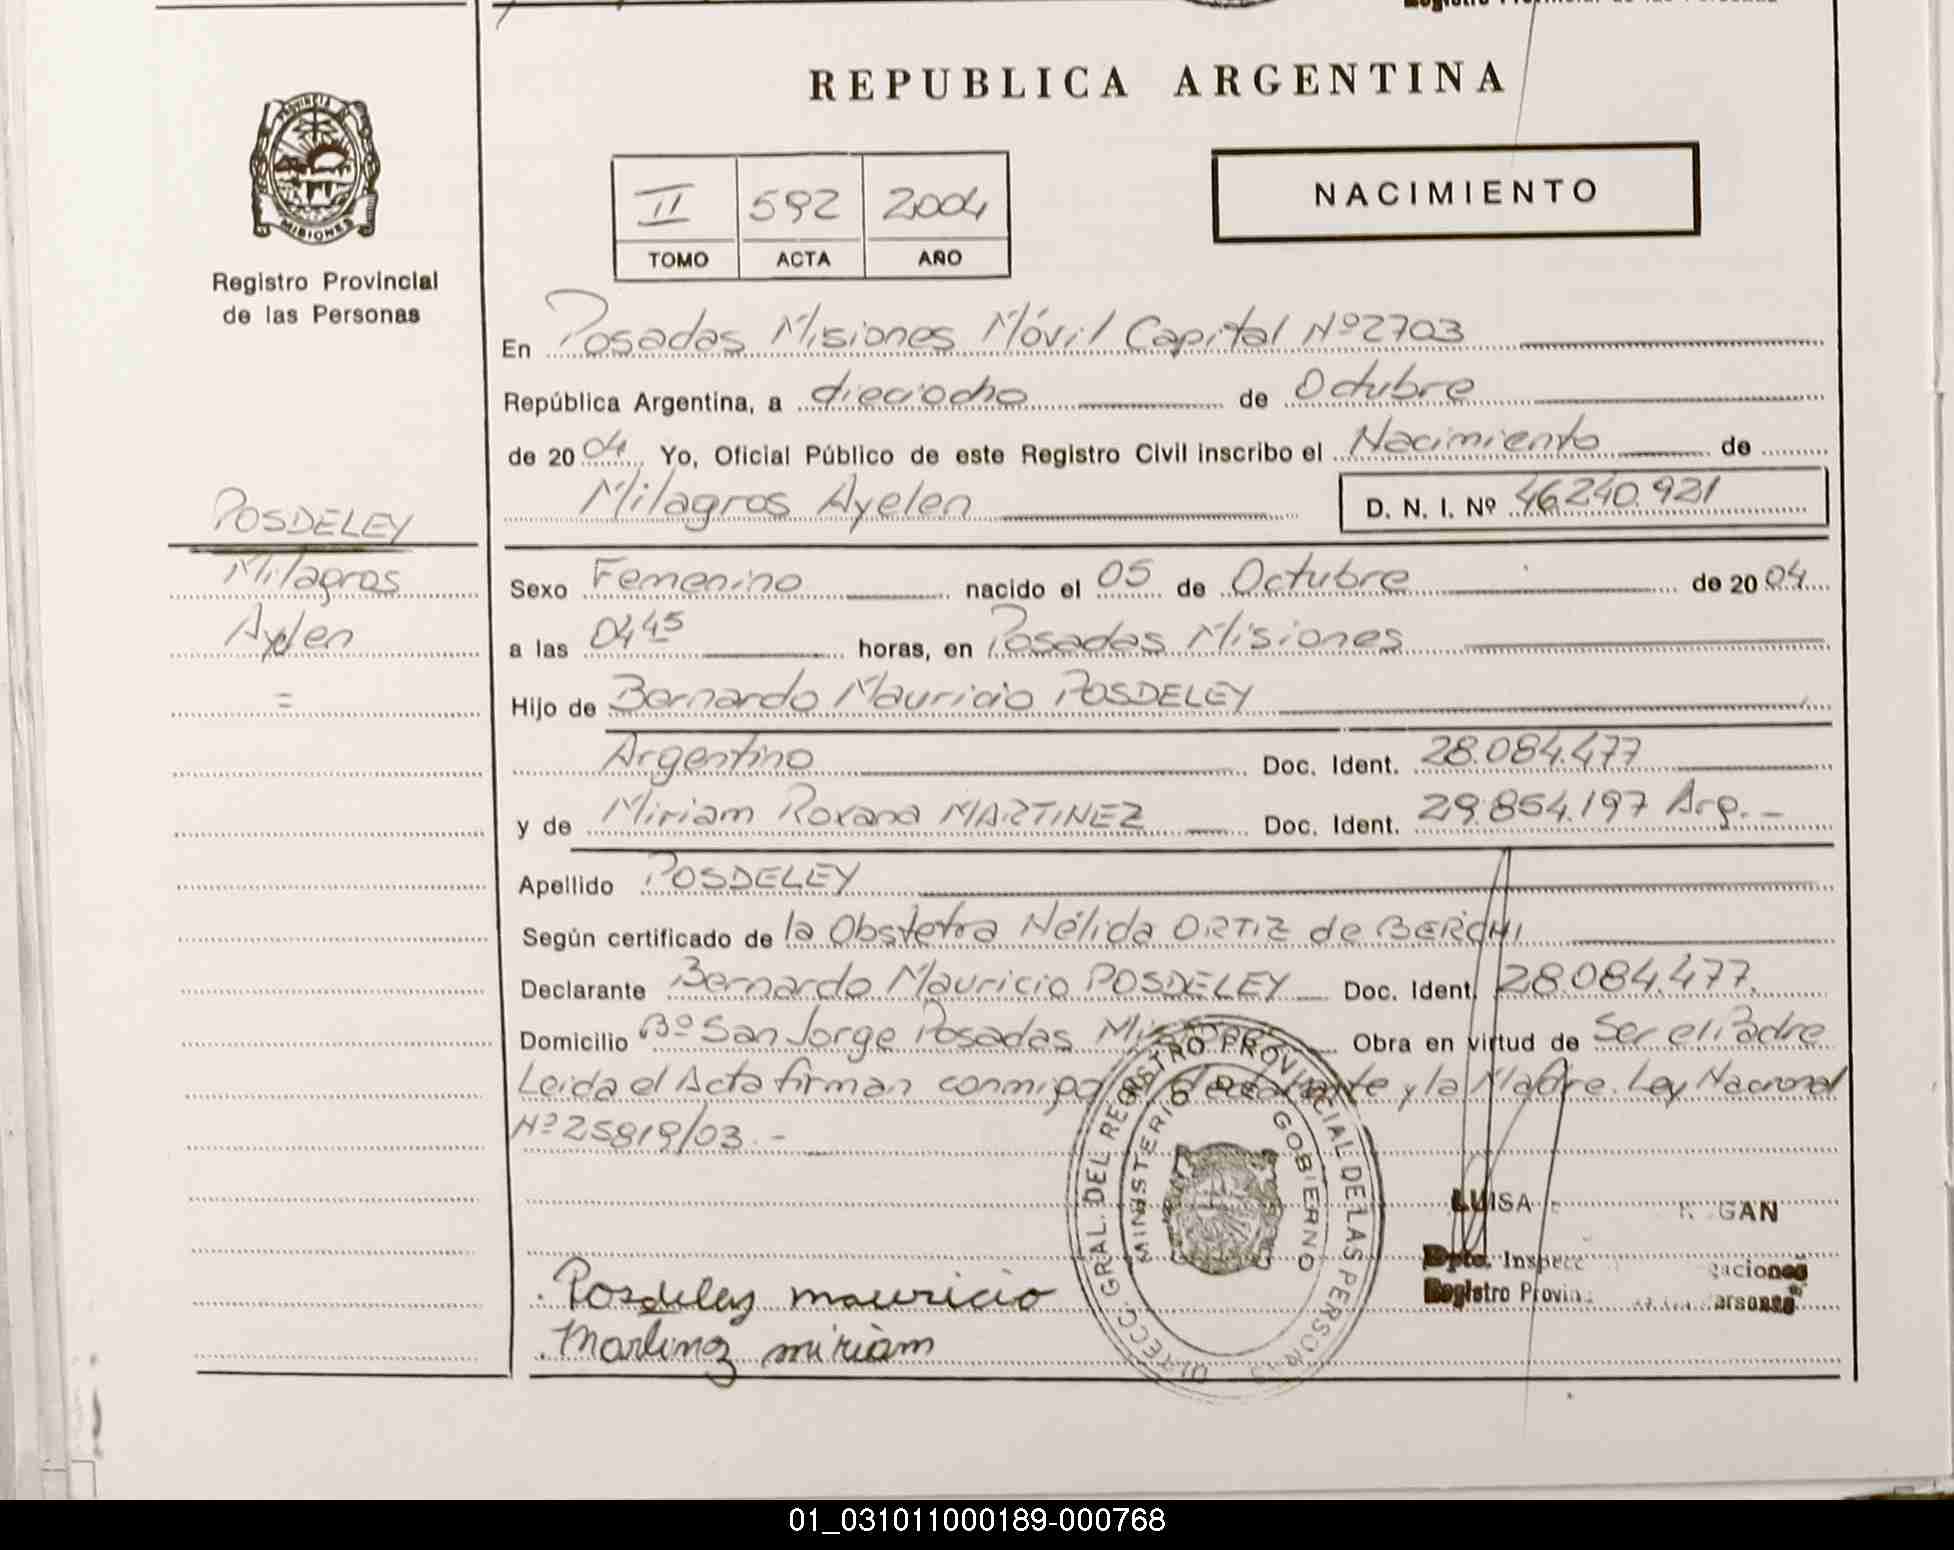 REPUBLICA ARGENTINA
PROVINCIA
MISIONES
Registro Provincial
de las Personas
II 592 2004
TOMO ACTA AÑO
NACIMIENTO
En Posadas Misiones Móvil Capital Nº2703
República Argentina, a dieciocho de Octubre
de 2004 Yo, Oficial Público de este Registro Civil inscribo el Nacimiento de
Milagros Ayelen D. N. I. Nº 46.240.921
POSDELEY
Milagros
Ayelen
=
Sexo Femenino nacido el 05 de Octubre de 2004
a las 04 45 horas, en Posadas Misiones
Hijo de Bernardo Mauricio POSDELEY
Argentino Doc. Ident. 28.084.477
y de Miriam Roxana MARTINEZ Doc. Ident. 29.854.197 Arg.-
Apellido POSDELEY
Según certificado de la Obstetra Nélida ORTIZ de BERCHI
Declarante Bernardo Mauricio POSDELEY Doc. Ident. 28.084.477.
Domicilio Bº San Jorge Posadas Misiones Obra en virtud de Ser el Padre
Leida el Acta firman conmigo el declarante y la Madre. Ley Nacional
Nº 25819/03.-
DIRECC. GRAL. DEL REGISTRO PROVINCIAL DE LAS PERSONAS
MINISTERIO DE GOBIERNO
LUISA GAN
Dpto. Inspecc
Registro Provin
Posdeley mauricio
Martinez miriam
01_031011000189-000768